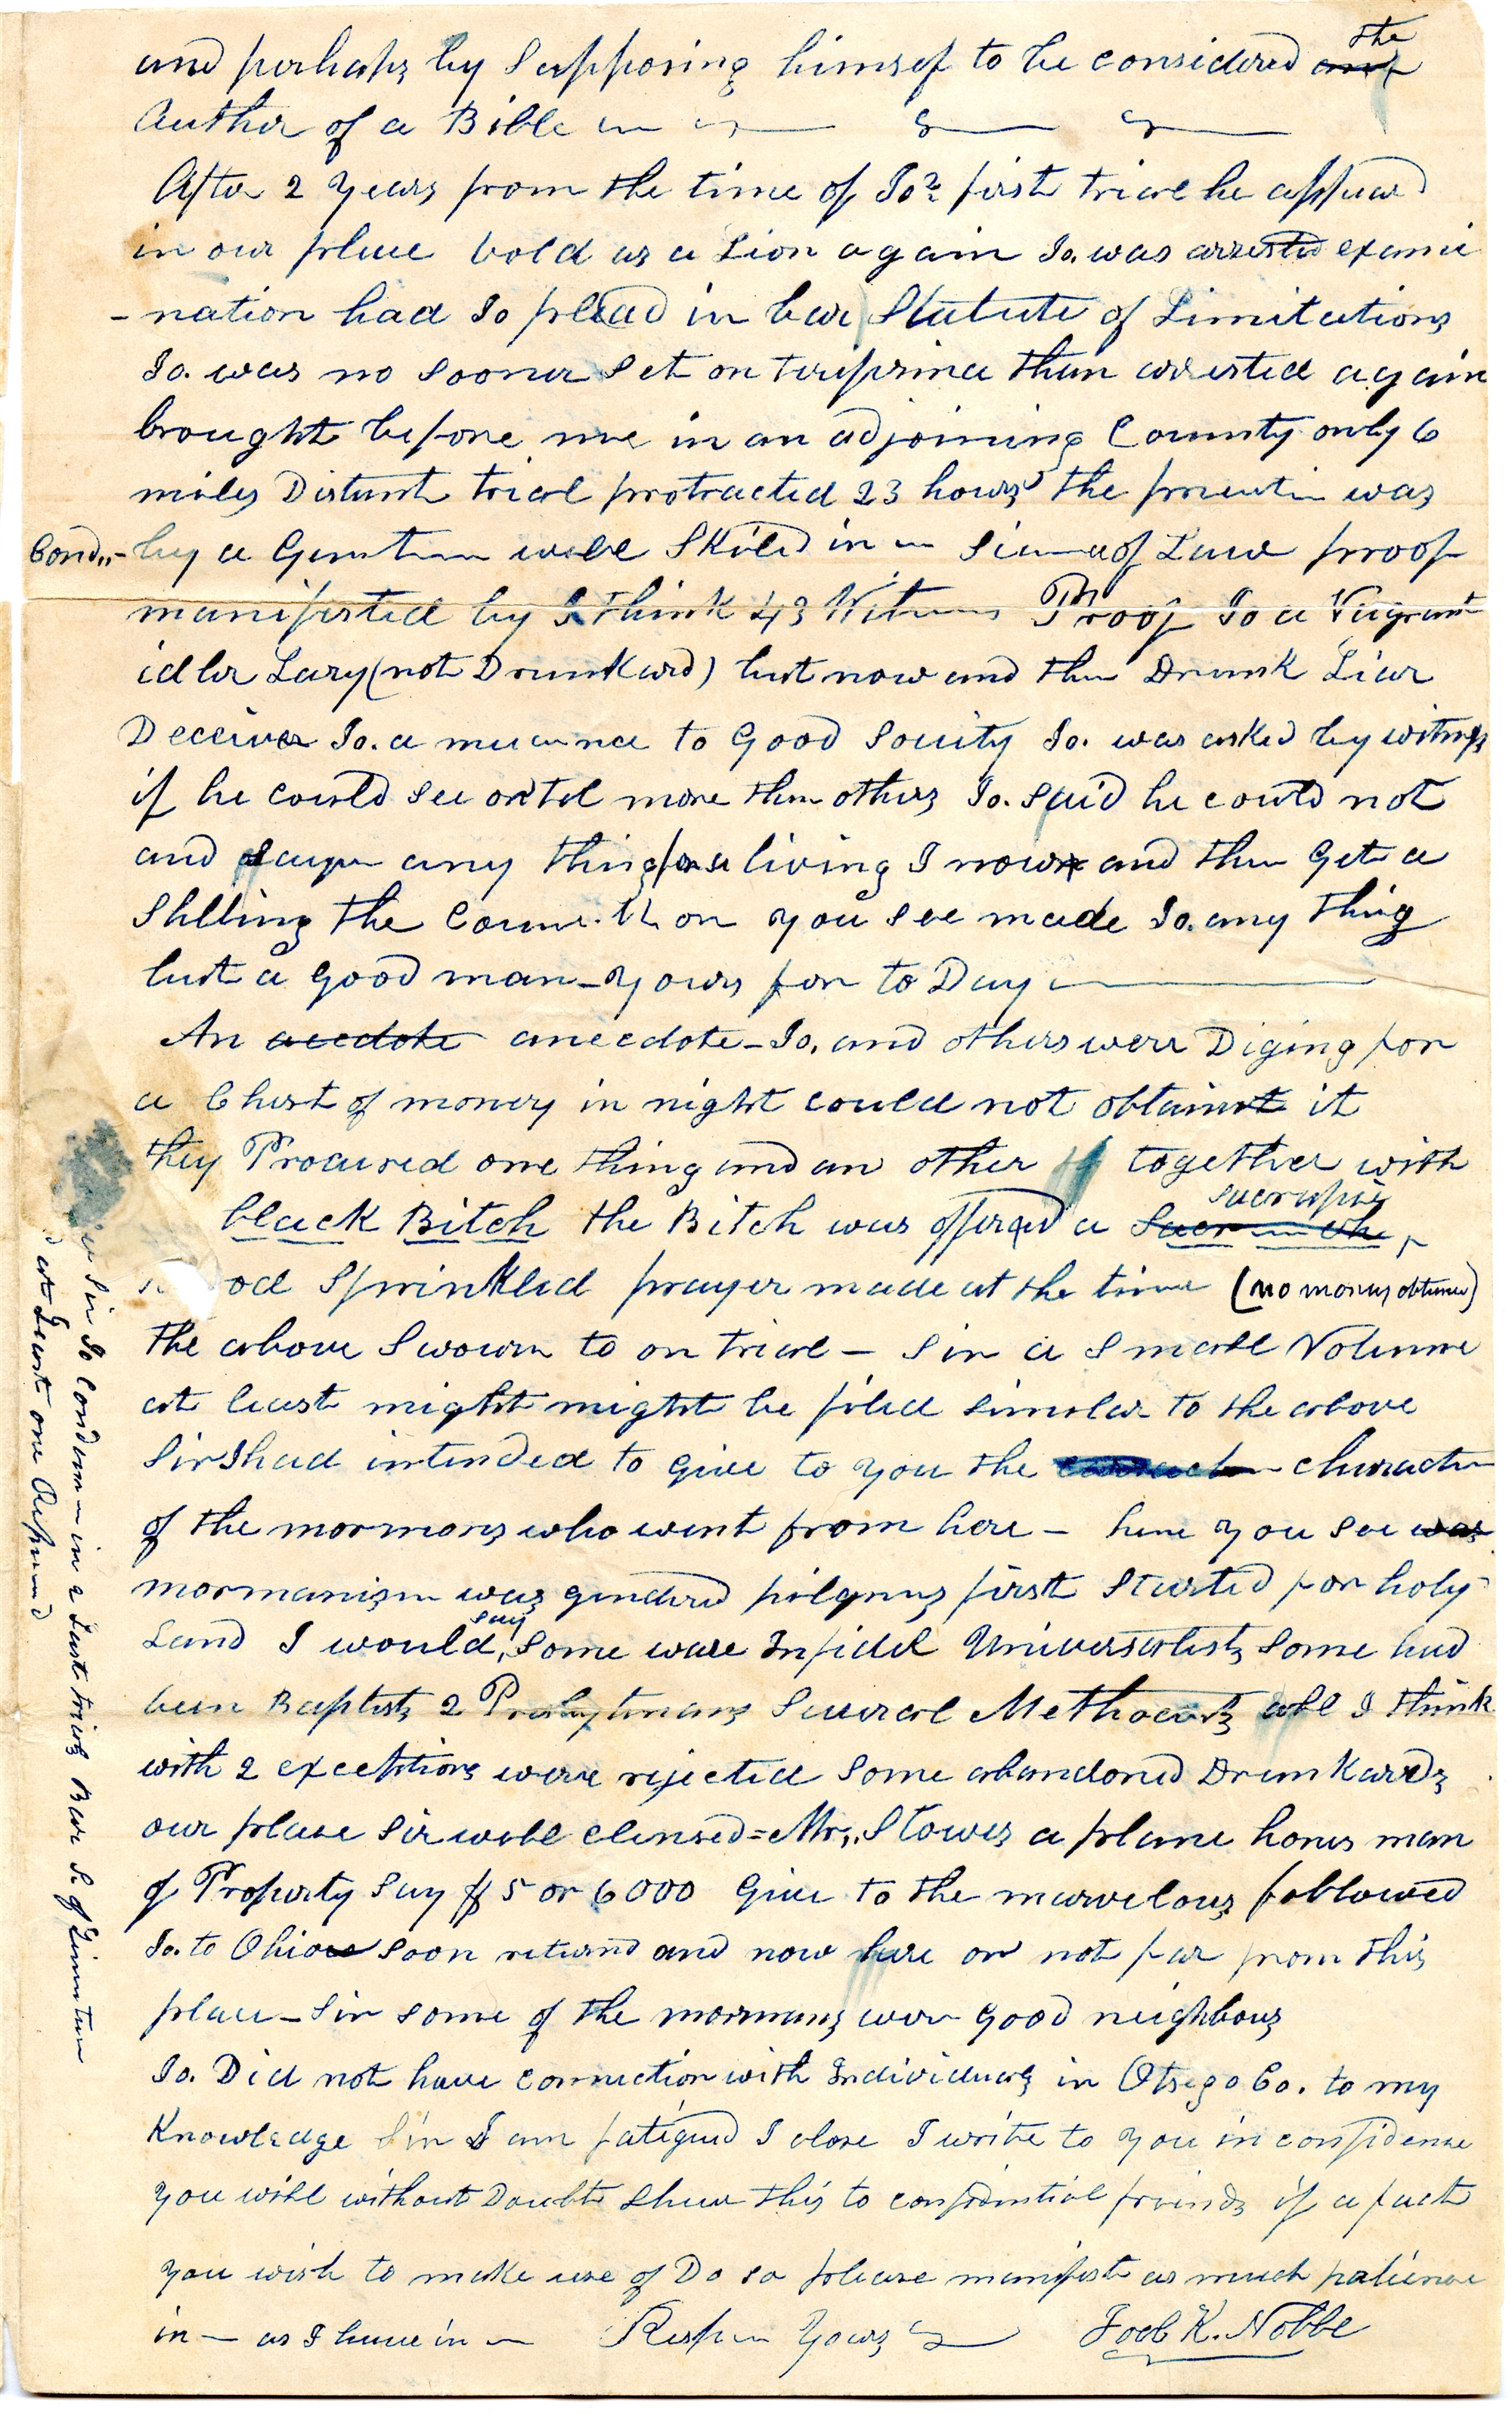 and perhaps by Supposing himsef to be considered the
Auther of a Bible
After 2 years from the time of Jos first trial he appeard
in our place bold as a Lion again Jo. was arrested exami
-nation had Jo plead in bar Statute of Limitations
Jo. was no sooner set on terifirma than arrested again
brought before me in an adjoining County only 6
miles Distant trial protracted 23 hours the
Cond,,- by a Gentm well Skiled in Siance of Law proof
manifested by I think 43 Witness Proof Jo a Vagrant
idler Lazy (not Drunkard) but now and then Drunk Liar
Deceiver Jo. a nucance to Good Society Jo. was asked by witness
if he could see or tel more than others Jo. said he could not
and says any thing for a living I now and then Get a
Shilling the you see made Jo. any thing
but a good man - yours for to Day
An acedote anecdote - Jo. and others were Diging for
a Chest of money in night could not obtain it
they Procured one thing and an other together with
black Bitch the Bitch was offered a sacrafise
od Sprinkled prayer made at the time (no money obtained)
the above Sworn to on trial - Sir a Small Volume
at least might might be filed similar to the above
Sir I had intended to give to you the character
of the mormons who went from here - here you see was
mormanism was gendered pilgrims first started for holy
Land I would say some were Infidel Universalists some had
been Baptists 2 Presbyterians Several Methodists all I think
with 2 exceptions were rejected some abandoned Drunkards
our place Sir well clensed = Mr,, Stowes a plane hones man
of Property say $ 5 or 6000 Give to the marvelous followed
Jo. to Ohio soon returnd and now here or not far from this
place - Sir some of the mormans were good neighbors
Jo. Did not have connection with Individuals in Otsego Co. to my
Knowledge Sir I am fatigued I close I write to you in confidence
you will without Doubt Shew this to confidential friends if a fact
you wish to make use of Do so please manifest as much patience
in - as I have in - Resp Yours Joel K. Noble
Sir Jo Condem in 2 Last trials Bar S. of Limitan
at Least one